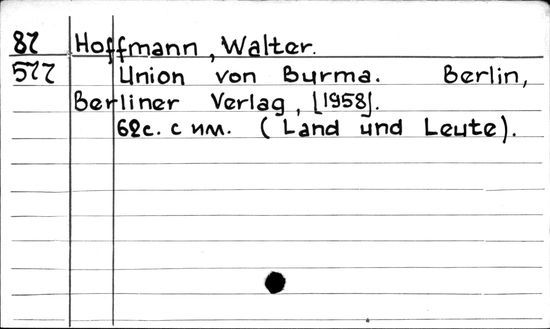 87 Hoffmann, Walter.
577 Union von Burma. Berlin,
Berliner Verlag, [1958].
62с. с ил. (Land und Leute).